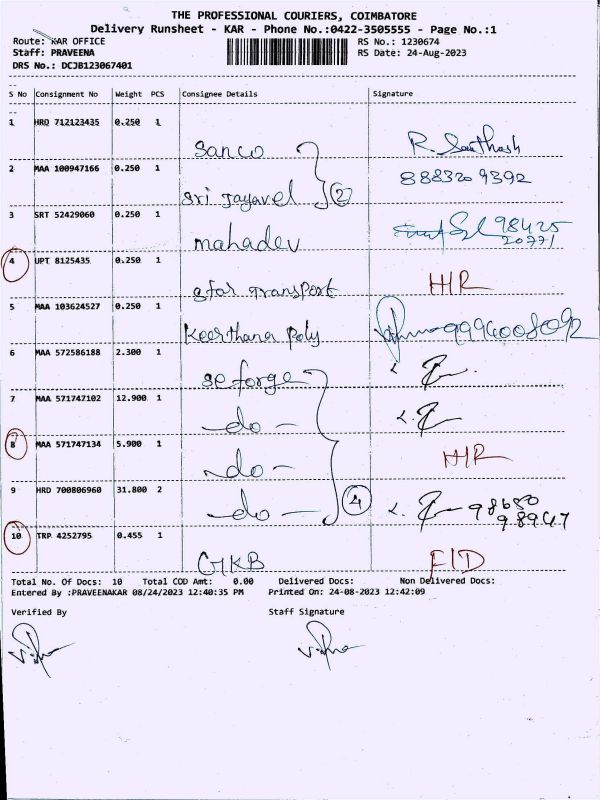 THE PROFESSIONAL COURIERS, COIMBATORE
Delivery Runsheet - KAR - Phone No.:0422-3505555 - Page No.:1
Route: KAR OFFICE RS No.: 1230674
Staff: PRAVEENA RS Date: 24-Aug-2023
DRS No.: DCJB123067401
S No Consignment No Weight PCS Consignee Details Signature
1 HRD 712123435 0.250 1
Sanco R. Santhosh
2 MAA 100947166 0.250 1 8883209392
Sri Jayavel 2
3 SRT 52429060 0.250 1 98425
mahadev 20771
4 UPT 8125435 0.250 1
Star Transport H/R
5 MAA 103624527 0.250 1
Keerthana Poly 9994008092
6 MAA 572586188 2.300 1
se forge
7 MAA 571747102 12.900 1
-do-
8 MAA 571747134 5.900 1
-do- H/R
9 HRD 700806960 31.800 2
-do- 4 98680
98947
10 TRP 4252795 0.455 1
GKB F/D
Total No. Of Docs: 10 Total COD Amt: 0.00 Delivered Docs: Non Delivered Docs:
Entered By :PRAVEENAKAR 08/24/2023 12:40:35 PM Printed On: 24-08-2023 12:42:09
Verified By Staff Signature